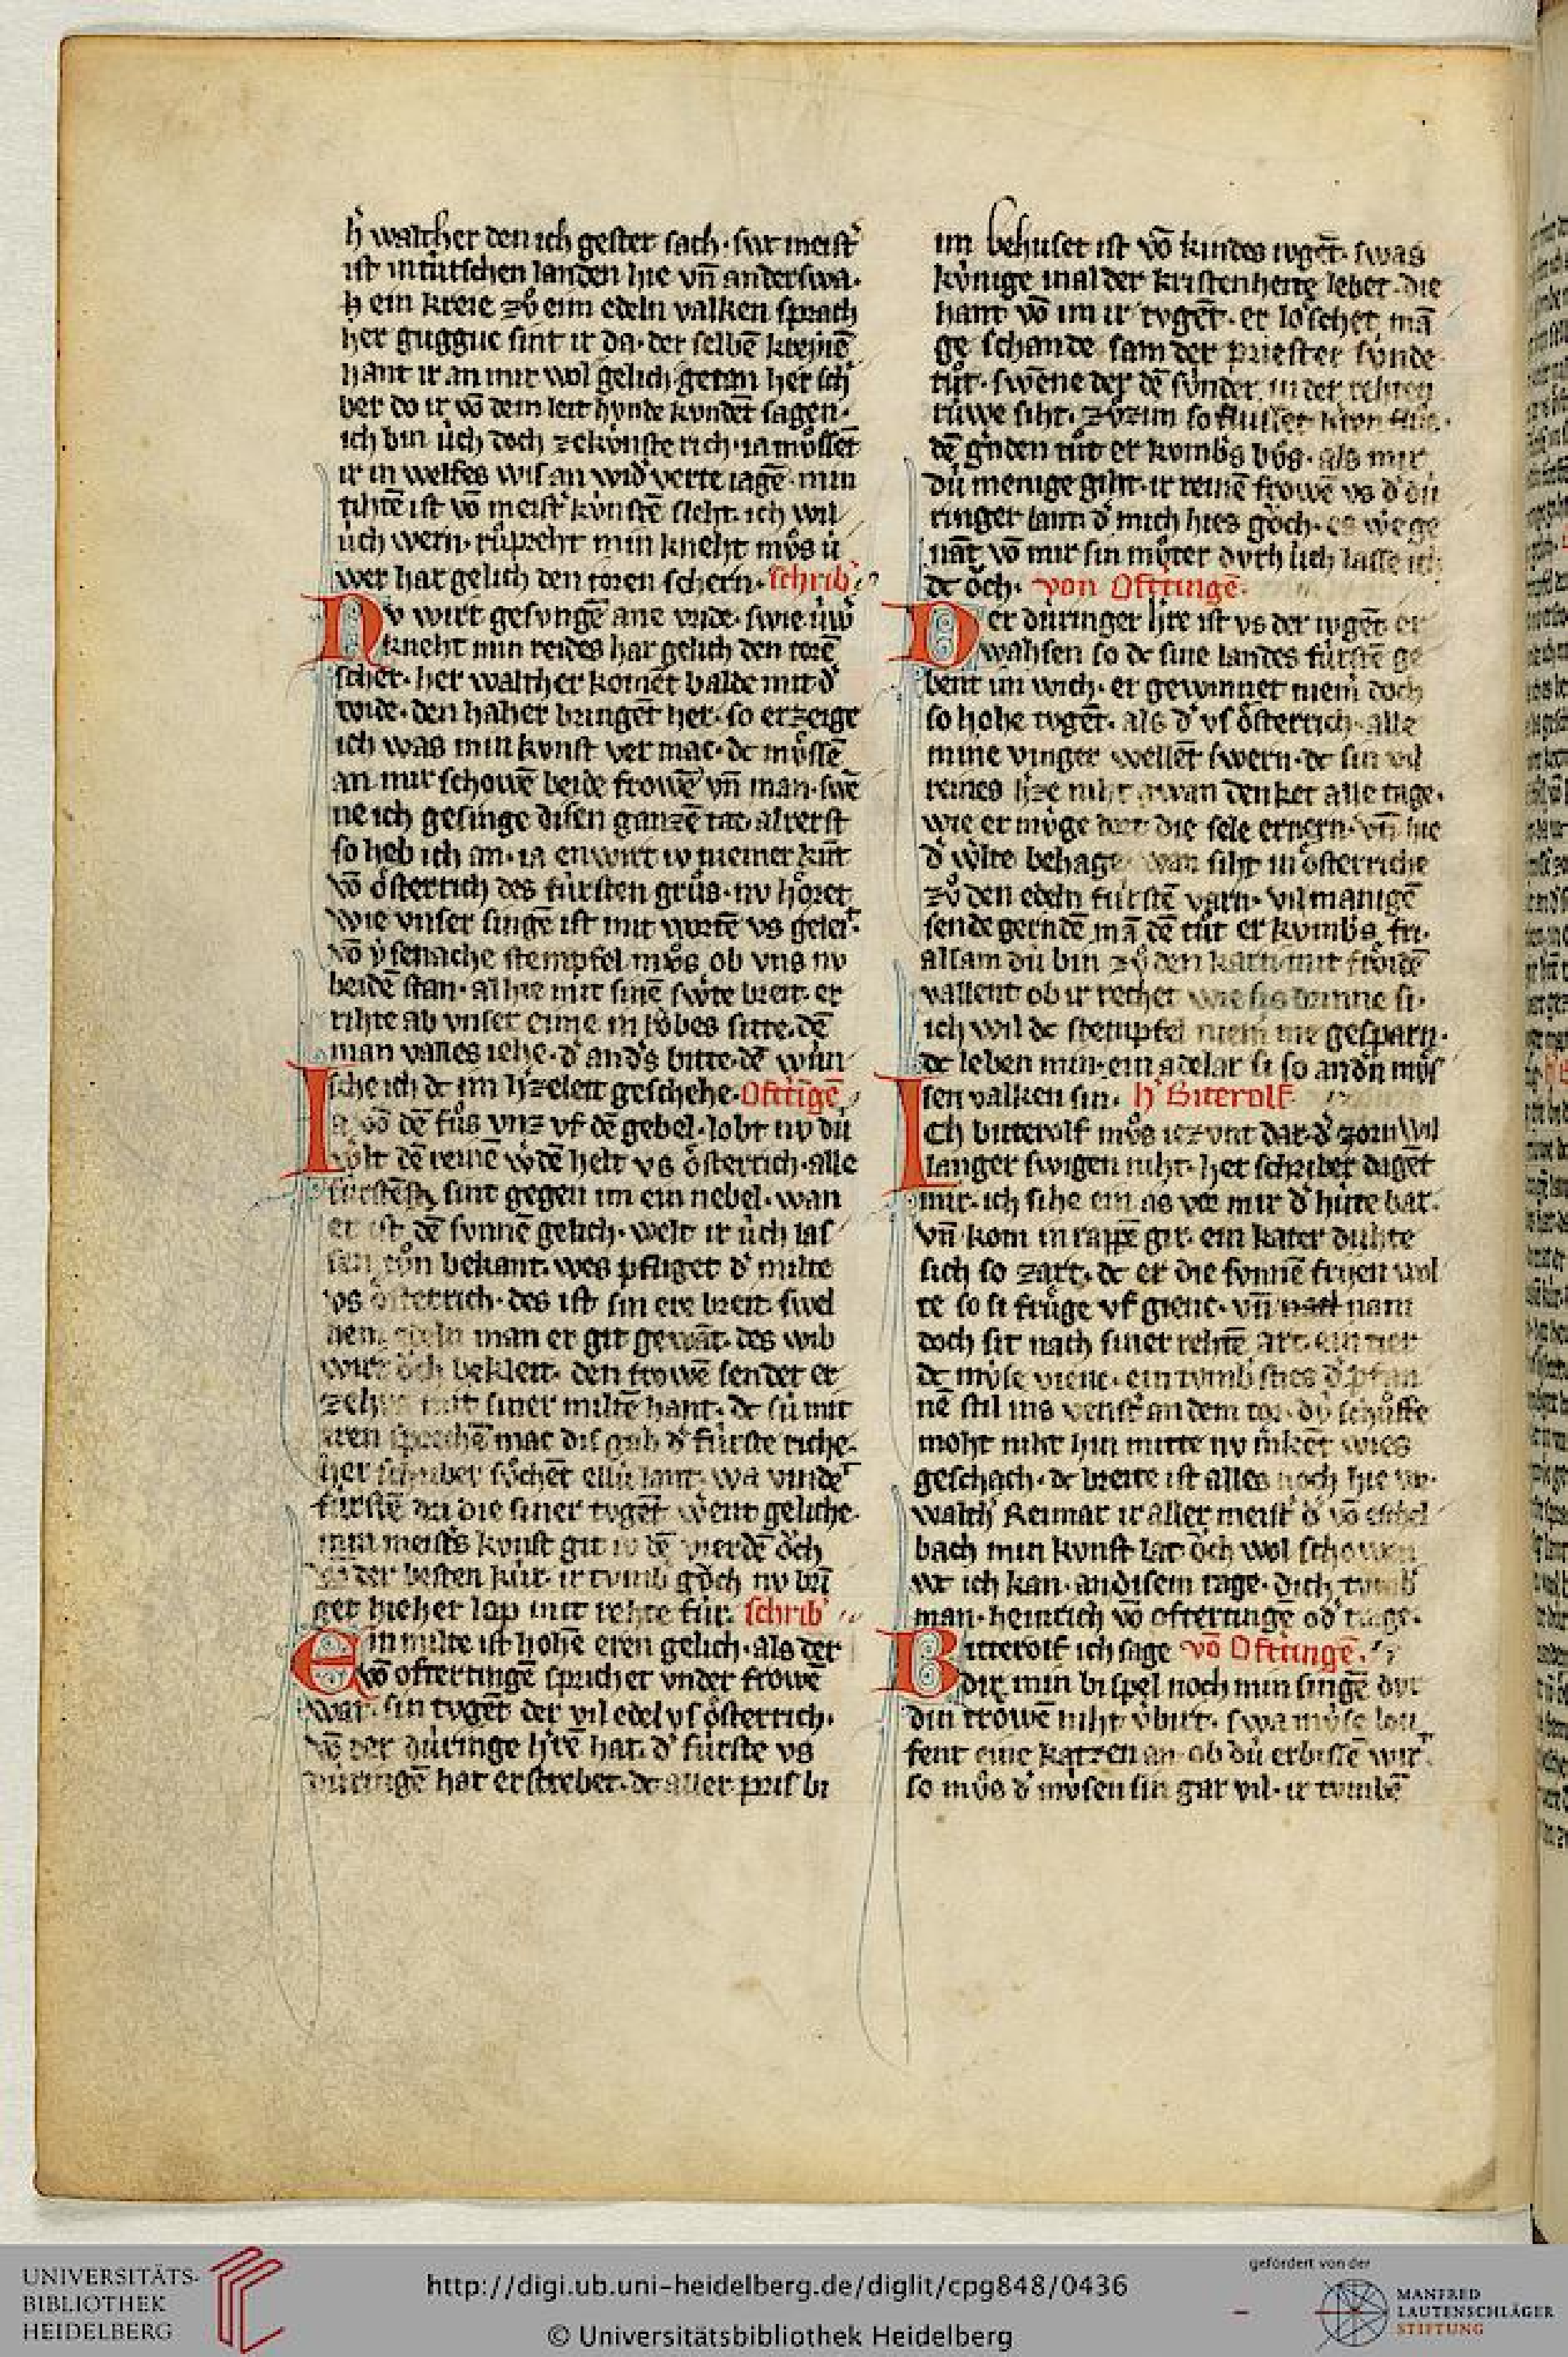 h̓ walther den ich gester sach · swc meist̓
ist in tútschen landen hie vñ anderswa ·
h̓ ein kreie zů eim edeln valken sprach
her guggug sint ir da · der selbē kreijnē
hant ir an mir wol gelich getan her sch
ber do ir vō dem leit hvnde kvndēt sagen ·
ich bin úch doch ze kvnste rich · ia mv̊ssēt
ir in welfes wis an wid̓ verte iagē · min
tihtē ist vō meist̓ kvnstē sleht · ich wil
úch wern · růpreht min kneht mv̊s ú
wer har gelich den toren schern · schrib̓
Nv wirt gesvngē ane vride · swie úw̓
kneht min reides har gelich den torē
schet · her walther komēt balde mit d̓
wide · den haher bringēt her · so erzeige
ich was min kvnst ver mac · dc mv̊ssē
an mir schowē beide frowē vñ man · swē
ne ich gesinge disen ganzē tac · alrerst
so heb ich an · ia enwirt iv niemer kvnt
vō ôsterrich des fúrsten grůs · nv hôret
wie vnser singē ist mit wortē vs geleit ·
vō ysenache stempfel mv̊s ob vns nv
beidē stan · alhie mit sinē swte breit · er
rihte ab vnser eime in rôbes sitte · dē
man valles iehe · d̓ and̓s bitte · dē wún
sche ich dc im h̓zeleit geschehe · Oftīgē
Ia vō dē fůs vnz vf dē gebel · lobt nv dú
w̓lt dē reinē w̓dē helt vs ôsterrich · alle
fúrstē sint gegen im ein nebel · wan
er ist dē svnnē gelich · welt ir úch las
sen tůn bekant · wes pfliget d̓ milte
vs ôsterrich · des ist sin ere breit · swel
nem edeln man er git gewāt · des wib
wirt ôch bekleit · den frowē sendet er
zehvs mit siner miltē hant · dc sú mit
eren sprechē mac dis gab d̓ fúrste riche ·
her schriber sv̊chēt ellú lant · wa vindēt
fúrstē dri die siner tvgēt w̓ent geliche ·
min meist̓s kvnst git iv dē vierdē ôch
der besten kúr · ir tvmb gôch nv brī
get hieher lop mit rehte fúr · schrib̓
Ein milte ist hohē eren gelich · als der
vō oftertingē sprichet vnder frowē
war · sin tvgēt der vil edel vs ôsterrich ·
der dúringe h̓rē hat · d̓ fúrste vs
dúringē hat erstrebet · dc aller pris bi
im behuset ist vō kindes ivgēt · swas
kv́nige in al der kristenheite lebet · die
hant vō im ir tvgēt · er lôschet mā
ge schande sam der priester sv́nde
tůt · swēne der dē sv́nder in der rehten
rúwe siht ·
dē gnden tůt er kvmb̓s bůs · als mir
dú menige giht · ir reinē frowē vs d̓ dú
ringer lant d̓ mich hies gôch · es we ge
nāt vō mir sin mv̊ter dvrh úch lasse ich
dc ôch · von Ofttingē ·
Der dúringer h̓re ist vs der ivgēt er
wahsen so dc sine landes fúrstē ge
bent im wich · er gewinnet niem̓ doch
so hohe tvgēt · als d̓ vs ôsterrich · alle
mine vinger wellēt swern · dc sin vil
reines h̓ze niht wan denket alle tage ·
wie er mvge dort die sele ernern · vñ hie
d̓ w̓lte behage · wan siht in ôsterriche
zů den edeln fúrstē varn · vil manigē
sende gerndē mā dē tůt er kvmb̓s fri ·
alsam dú bin zů den karn mit frôidē
vallent ob ir rechet wie sis brinne si ·
ich wil dc stempfel niem̓ me gesparn ·
dc leben min · ein adelar si so andn mv̊s
sen valken sin · h̓ Biterolf
Ich bitterolf mv̊s iezvnt dar · d̓ zorn wil
langer swigen niht · her schriber dagēt
mir · ich sihe ein as vor mir d̓ húte bar ·
vñ kom in rappē gir · ein kater duhte
sich so zart · dc er die svnnē frijen wol
te so si frůge vf giene · vñ nam
doch sit nach siner rehtē art · ein tier
dc múse vienc · ein tvmb sties d̓ pfan
nē stil ins venst̓ an dem tor · dú schúffe
moht niht hin mitte nv mkēt wies
geschach · dc breite ist alles noch hie vor ·
walth̓ Reimar ir aller meist̓ d̓ vō eschel
bach min kvnst lat ôch wol schowen
wc ich kan · an disem tage · dich tvmb̓
man · heinrich vō oftertingē od̓ trage ·
Bitterolf ich sage vō Ofttingē ·
dir min bispel noch min singē dvr
din trowē niht v̓birt · swa mv́se lou
fent eine katzen an · ob dú erbissē wirt
so mv̊s d̓ mvsen sin gar vil · ir tvmbē
UNIVERSITÄTS-
BIBLIOTHEK
HEIDELBERG
http://digi.ub.uni-heidelberg.de/diglit/cpg848/0436
© Universitätsbibliothek Heidelberg
gefördert von der
MANFRED
LAUTENSCHLÄGER
STIFTUNG